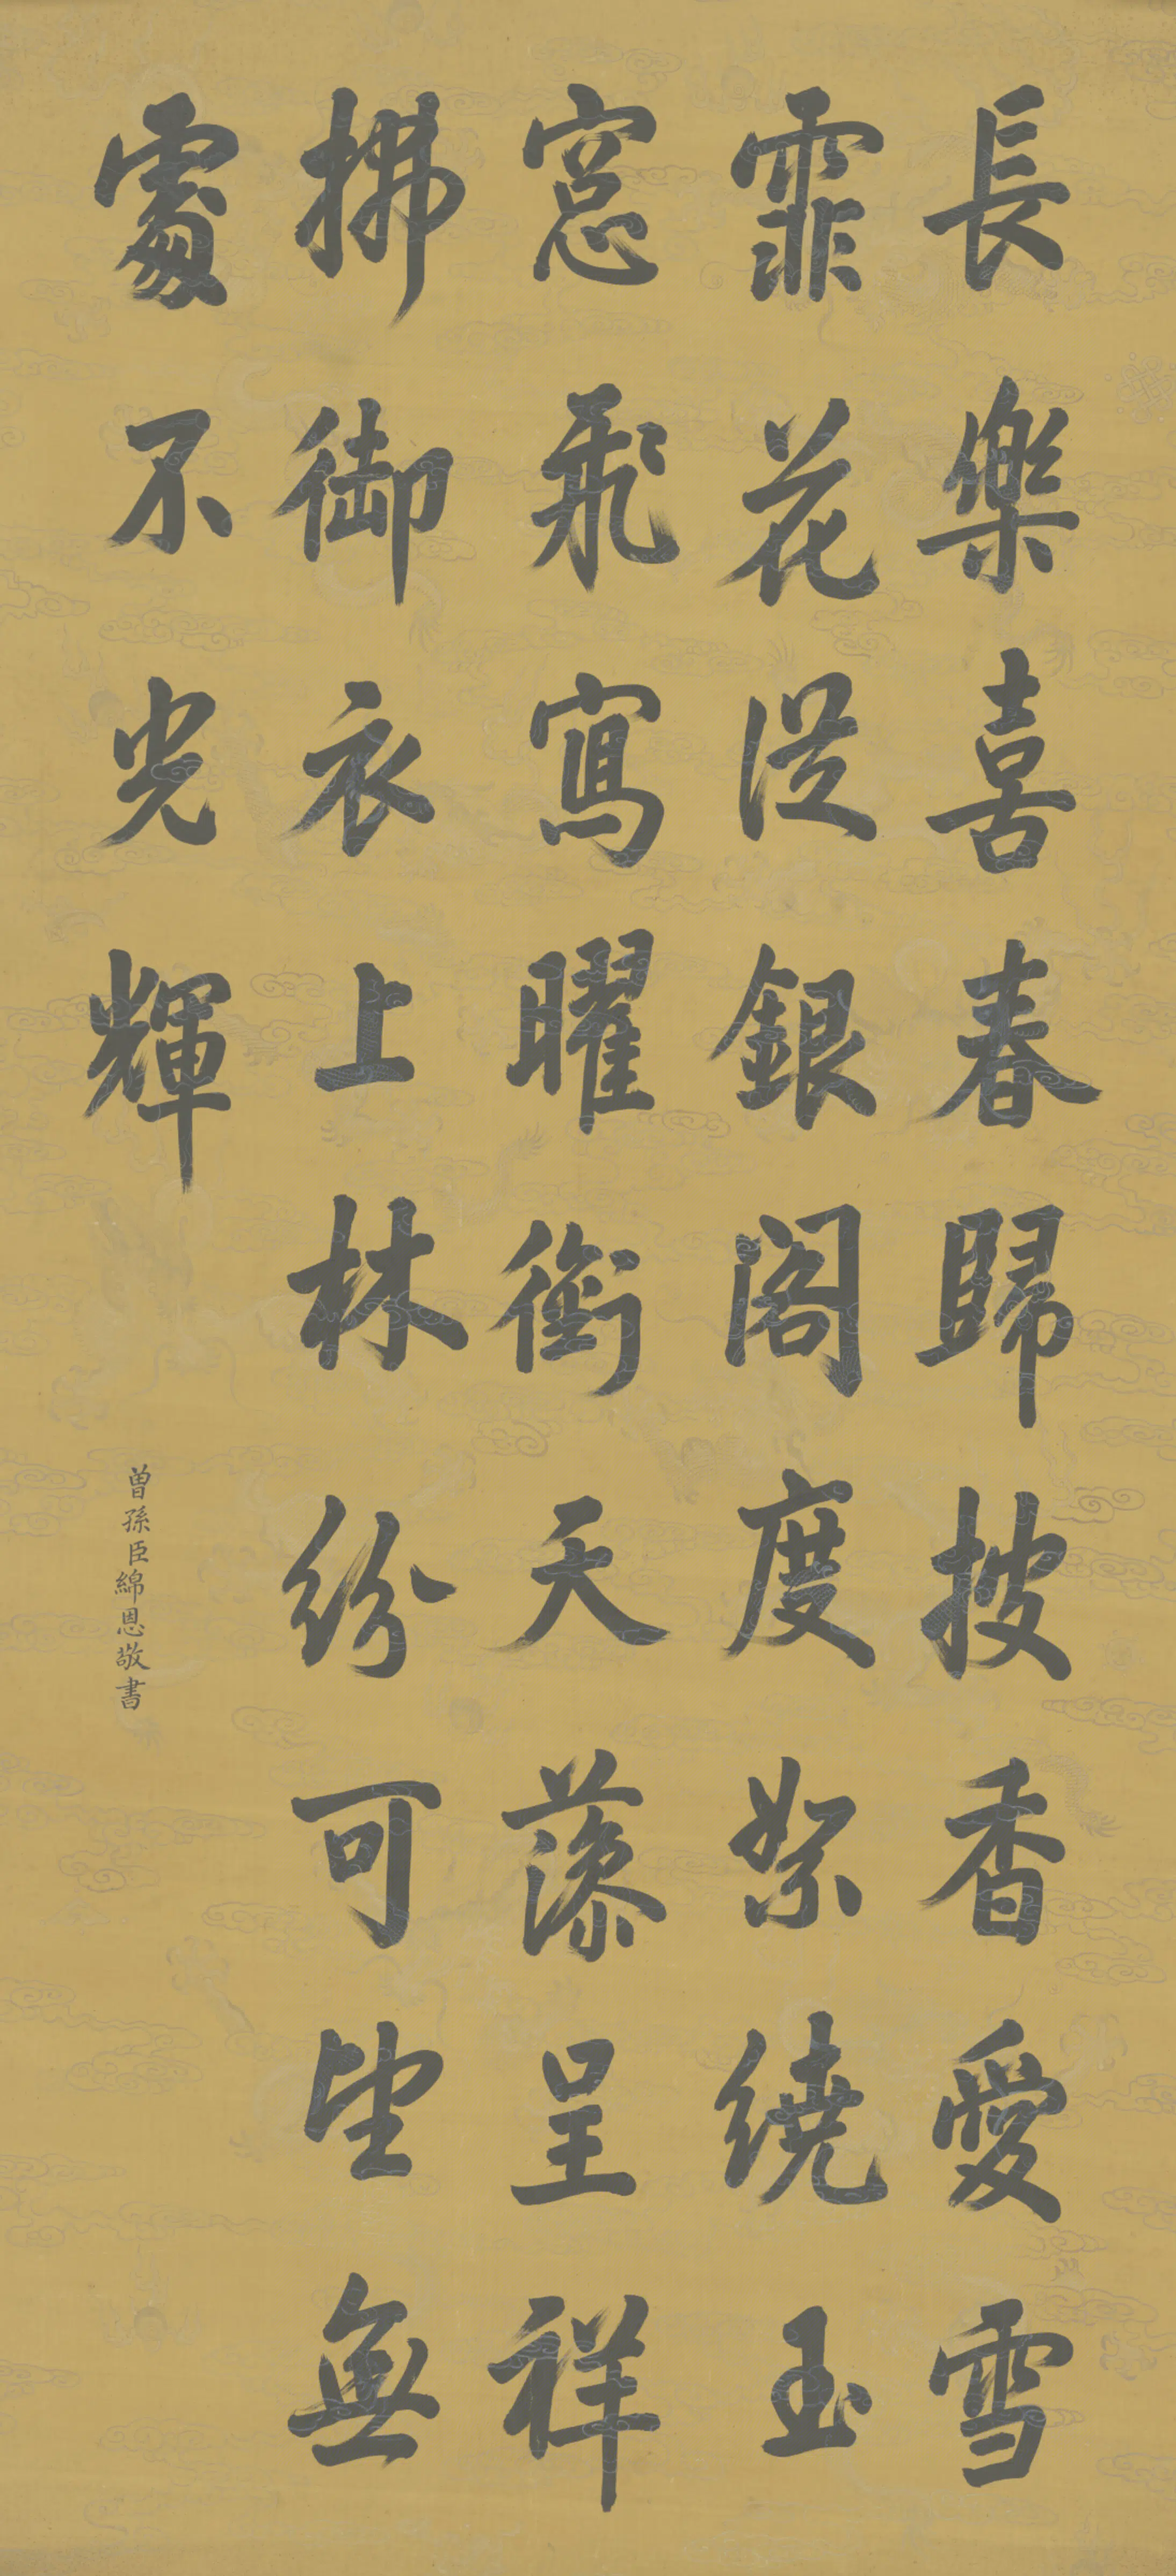 長樂喜春歸披香愛雪
霏花從銀閣度絮繞玉
窓飛寫曜銜天藻呈祥
拂御衣上林紛可望無
處不光輝
曾孫臣綿恩敬書